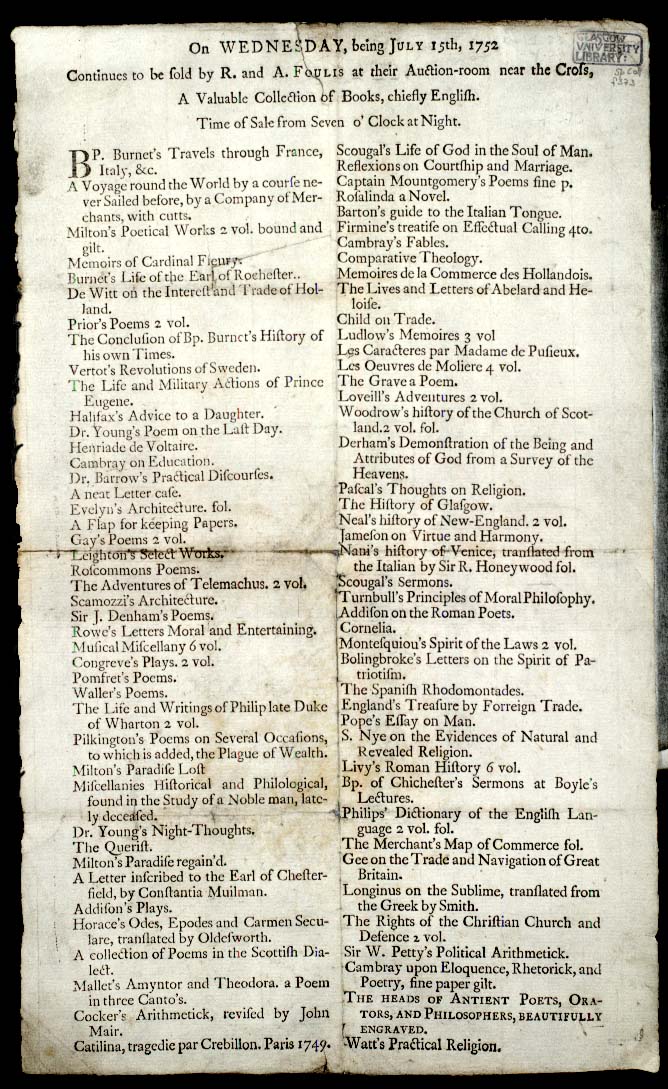 On WEDNESDAY, being JULY 15th, 1752
Continues to be ſold by R. and A. FOULIS at their Auction-room near the Croſs,
A Valuable Collection of Books, chiefly Engliſh.
Time of Sale from Seven o' Clock at Night.
GLASGOW
UNIVERSITY
LIBRARY:
BP. Burnet's Travels through France,
Italy, &c.
A Voyage round the World by a courſe ne-
ver Sailed before, by a Company of Mer-
chants, with cutts.
Milton's Poetical Works 2 vol. bound and
gilt.
Memoirs of Cardinal Fleury.
Burnet's Life of the Earl of Rocheſter..
De Witt on the Intereſt and Trade of Hol-
land.
Prior's Poems 2 vol.
The Concluſion of Bp. Burnet's Hiſtory of
his own Times.
Vertot's Revolutions of Sweden.
The Life and Military Actions of Prince
Eugene.
Halifax's Advice to a Daughter.
Dr. Young's Poem on the Laſt Day.
Henriade de Voltaire.
Cambray on Education.
Dr. Barrow's Practical Diſcourſes.
A neat Letter caſe.
Evelyn's Architecture. fol.
A Flap for keeping Papers.
Gay's Poems 2 vol.
Leighton's Select Works.
Roſcommons Poems.
The Adventures of Telemachus. 2 vol.
Scamozzi's Architecture.
Sir J. Denham's Poems.
Rowe's Letters Moral and Entertaining.
Muſical Miſcellany 6 vol.
Congreve's Plays. 2 vol.
Pomfret's Poems.
Waller's Poems.
The Life and Writings of Philip late Duke
of Wharton 2 vol.
Pilkington's Poems on Several Occaſions,
to which is added, the Plague of Wealth.
Milton's Paradiſe Loſt
Miſcellanies Hiſtorical and Philological,
found in the Study of a Noble man, late-
ly deceaſed.
Dr. Young's Night-Thoughts.
The Queriſt.
Milton's Paradiſe regain'd.
A Letter inſcribed to the Earl of Cheſter-
field, by Conſtantia Muilman.
Addiſon's Plays.
Horace's Odes, Epodes and Carmen Secu-
lare, tranſlated by Oldeſworth.
A collection of Poems in the Scottiſh Dia-
lect.
Mallet's Amyntor and Theodora. a Poem
in three Canto's.
Cocker's Arithmetick, reviſed by John
Mair.
Catilina, tragedie par Crebillon. Paris 1749.
Scougal's Life of God in the Soul of Man.
Reflexions on Courtſhip and Marriage.
Captain Mountgomery's Poems fine p.
Roſalinda a Novel.
Barton's guide to the Italian Tongue.
Firmine's treatiſe on Effectual Calling 4to.
Cambray's Fables.
Comparative Theology.
Memoires de la Commerce des Hollandois.
The Lives and Letters of Abelard and He-
loiſe.
Child on Trade.
Ludlow's Memoires 3 vol
Les Caracteres par Madame de Puſieux.
Les Oeuvres de Moliere 4 vol.
The Grave a Poem.
Loveill's Adventures 2 vol.
Woodrow's hiſtory of the Church of Scot-
land. 2 vol. fol.
Derham's Demonſtration of the Being and
Attributes of God from a Survey of the
Heavens.
Paſcal's Thoughts on Religion.
The Hiſtory of Glaſgow.
Neal's hiſtory of New-England. 2 vol.
Jameſon on Virtue and Harmony.
Nani's hiſtory of Venice, tranſlated from
the Italian by Sir R. Honeywood fol.
Scougal's Sermons.
Turnbull's Principles of Moral Philoſophy.
Addiſon on the Roman Poets.
Cornelia.
Monteſquiou's Spirit of the Laws 2 vol.
Bolingbroke's Letters on the Spirit of Pa-
triotiſm.
The Spaniſh Rhodomontades.
England's Treaſure by Forreign Trade.
Pope's Eſſay on Man.
S. Nye on the Evidences of Natural and
Revealed Religion.
Livy's Roman Hiſtory 6 vol.
Bp. of Chicheſter's Sermons at Boyle's
Lectures.
Philips' Dictionary of the Engliſh Lan-
guage 2 vol. fol.
The Merchant's Map of Commerce fol.
Gee on the Trade and Navigation of Great
Britain.
Longinus on the Sublime, tranſlated from
the Greek by Smith.
The Rights of the Chriſtian Church and
Defence 2 vol.
Sir W. Petty's Political Arithmetick.
Cambray upon Eloquence, Rhetorick, and
Poetry, fine paper gilt.
THE HEADS OF ANTIENT POETS, ORA-
TORS, AND PHILOSOPHERS, BEAUTIFULLY
ENGRAVED.
Watt's Practical Religion.